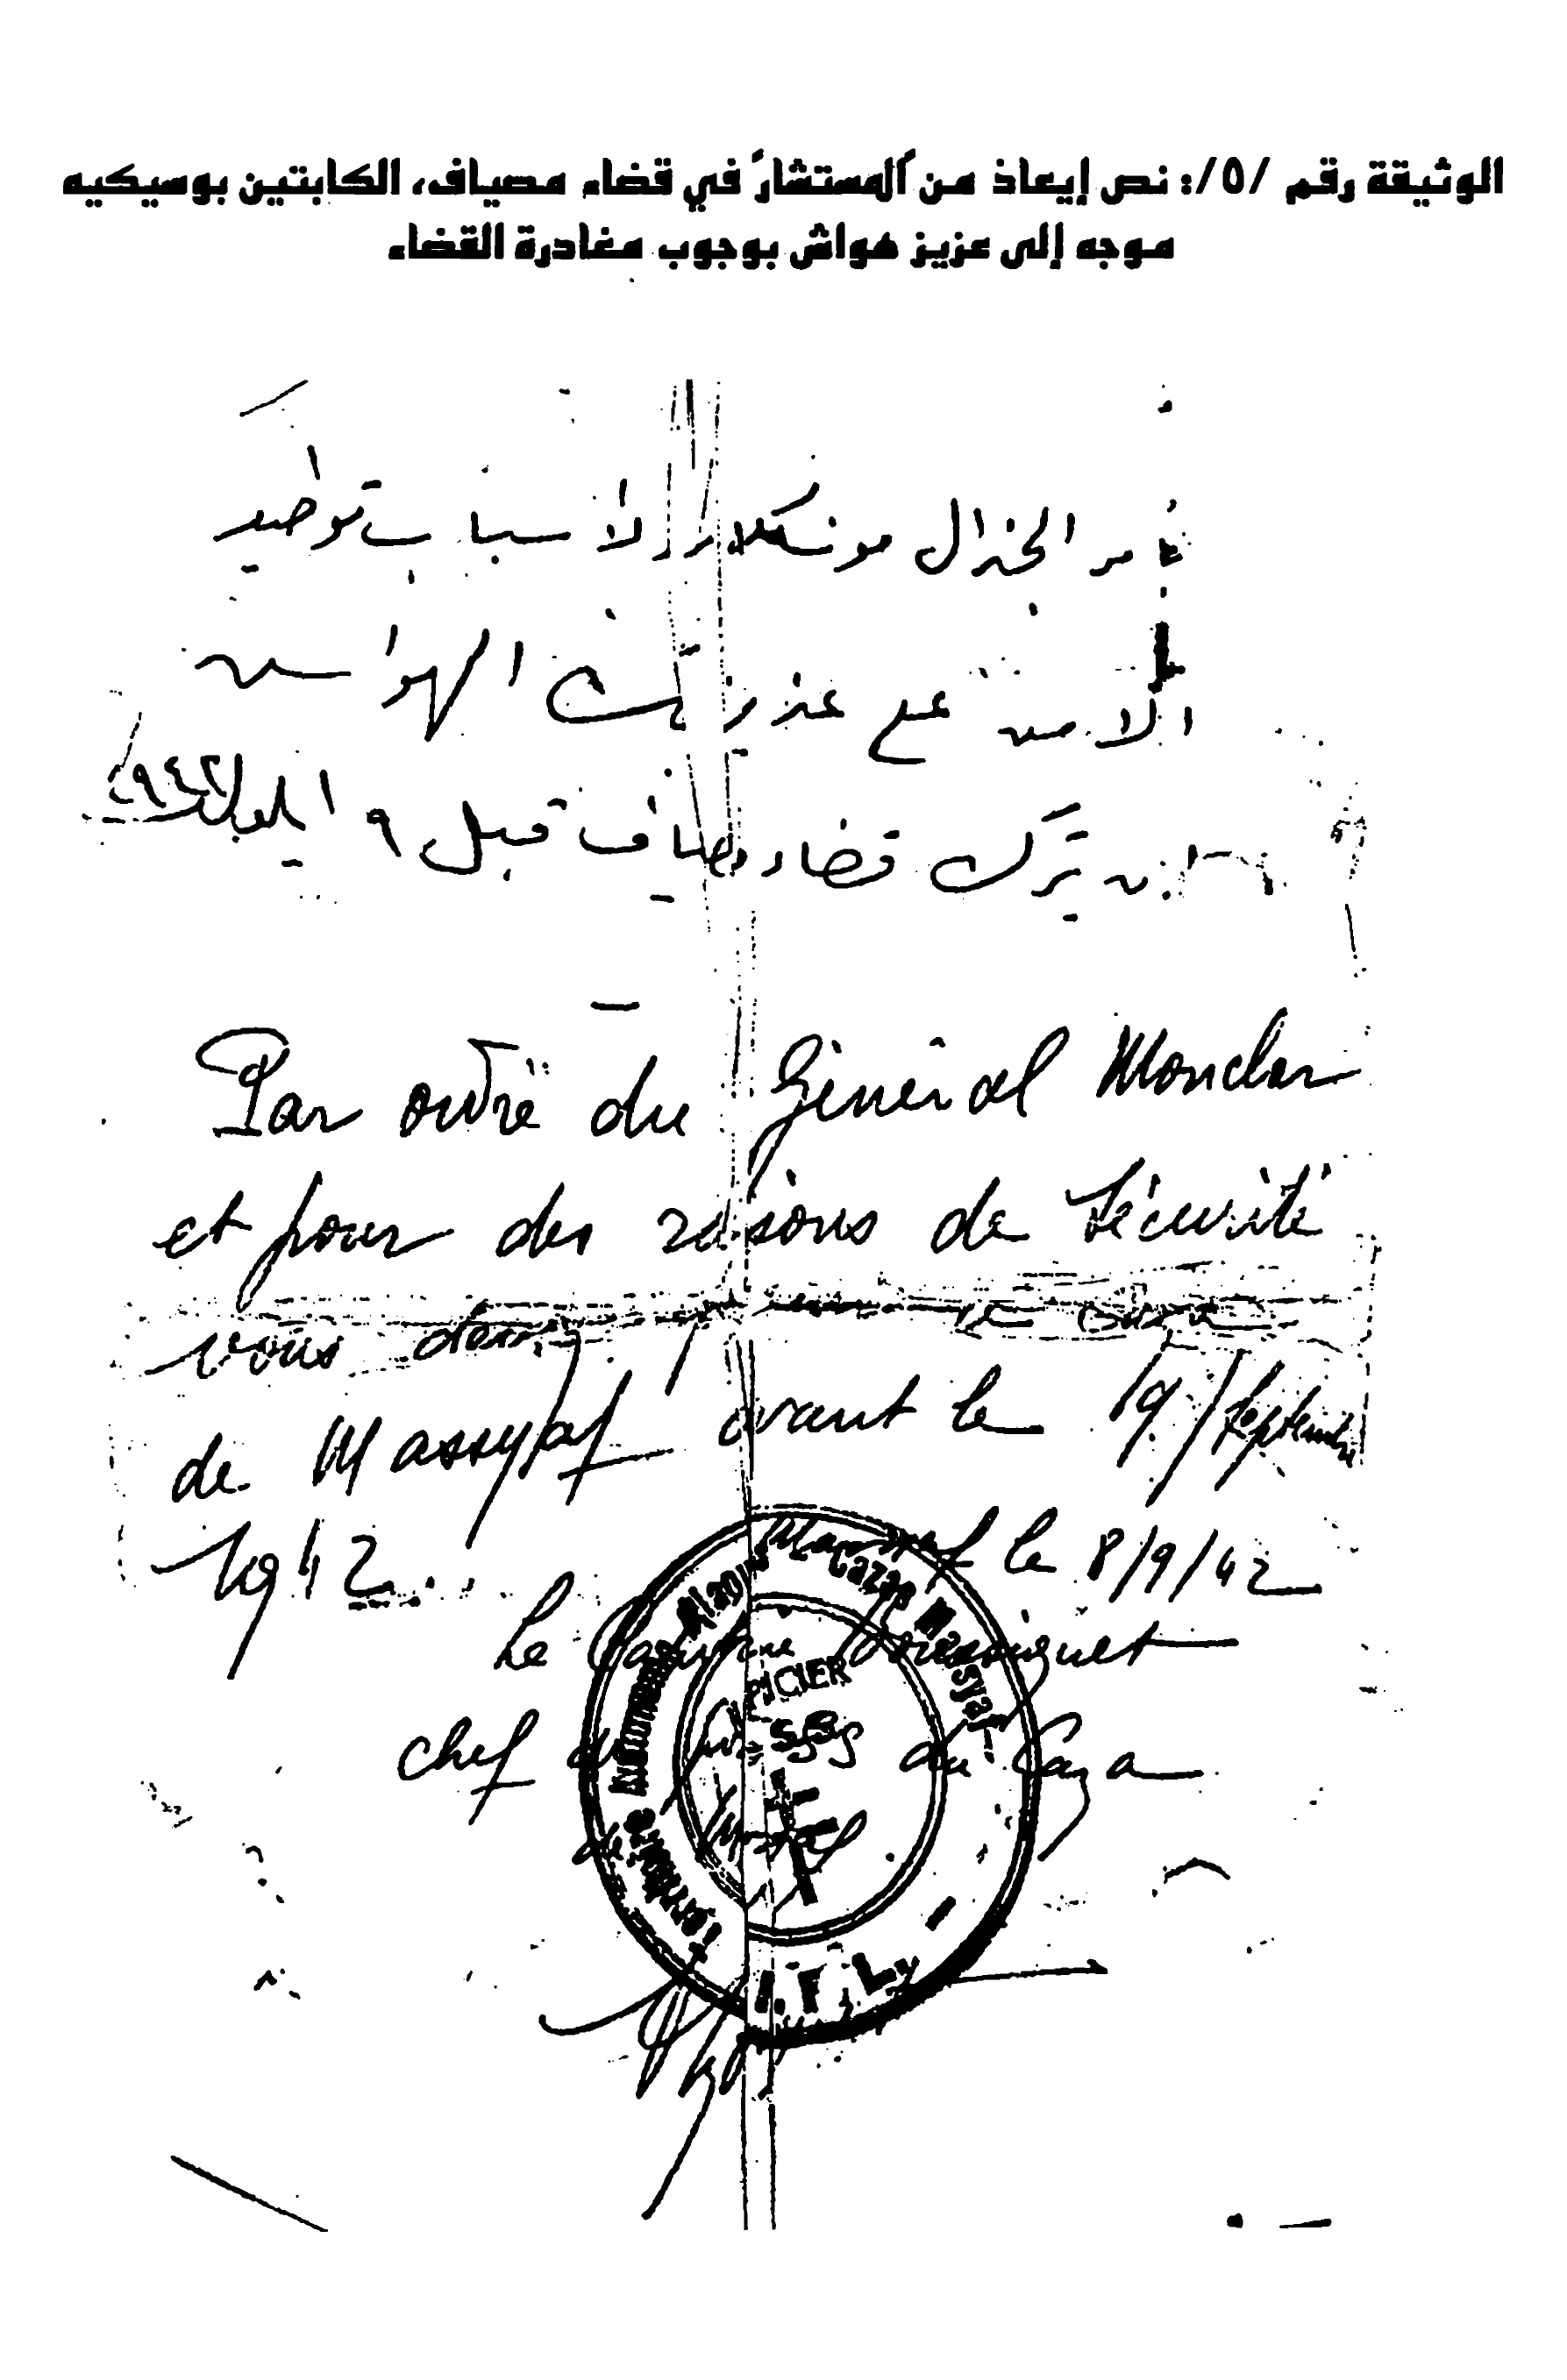 الوثيقة رقم /٥/: نص إيعاذ من المستشار في قضاء مصياف، الكابتين بوسيكيه
موجه إلى عزيز هواش بوجوب مغادرة القضاء
بأمر الجنرال مونكلار لأسباب توطيد
الامن على عزيز بك الهواش
ان يترك قضاء مصياف قبل ٩ ايلول ٩٤٢
Par ordre du Général Monclar
et pour des raisons de sécurité
vous devez
de Massyaf avant le 19/septembre
1942.
Massyaf le 8/9/42
Le Capitaine
chef du Caza
de
Territoire Autonome Alaouite Caza Massyaf